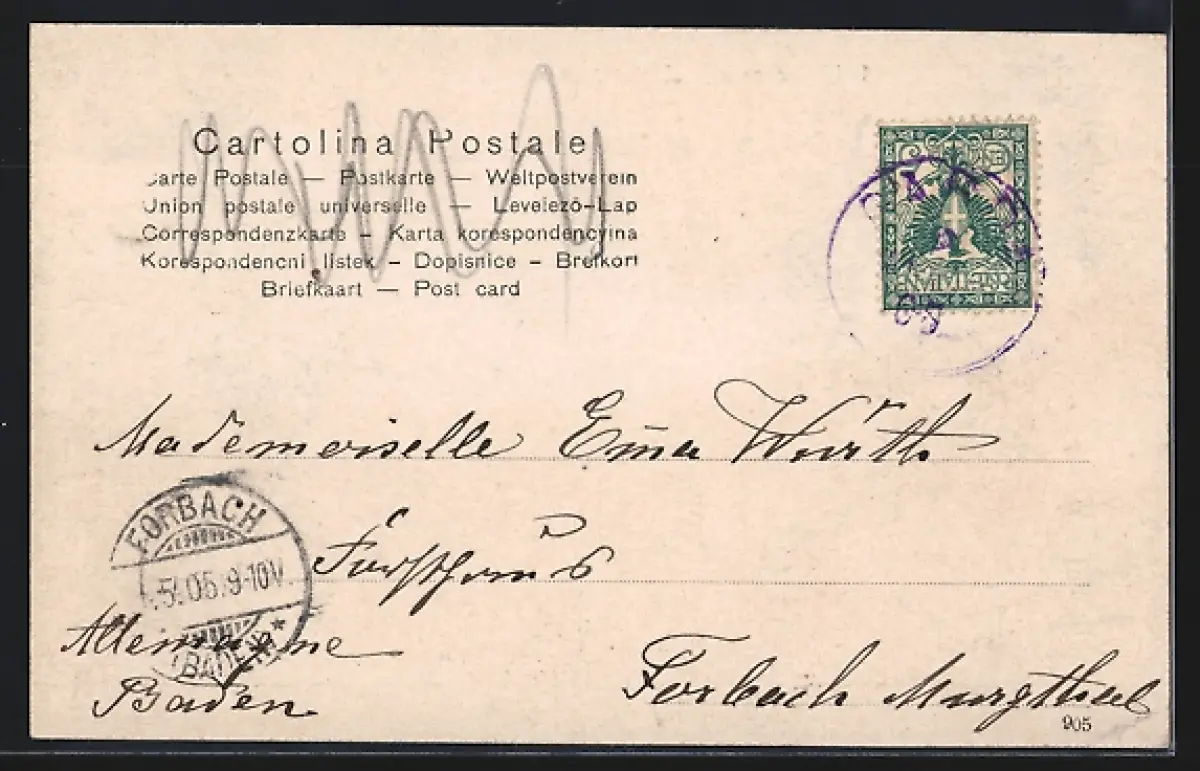 Cartolina Postale
Carte Postale — Postkarte — Weltpostverein
Union postale universelle — Levelezö-Lap
Correspondenzkarte – Karta korespondencyjna
Korespondencni listek – Dopisnice – Brefkort
Briefkaart — Post card
POSTE ITALIANE
Mademoiselle Ema Würth
FORBACH
5.06.9-10V
(BADEN)
Forsthaus
Allemagne
Baden
Forbach Murgthal
905